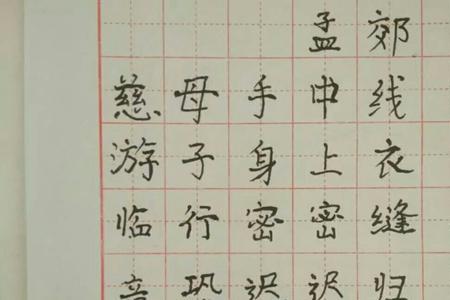 孟郊
慈母手中线
游子身上衣
临行密密缝
意恐迟迟归